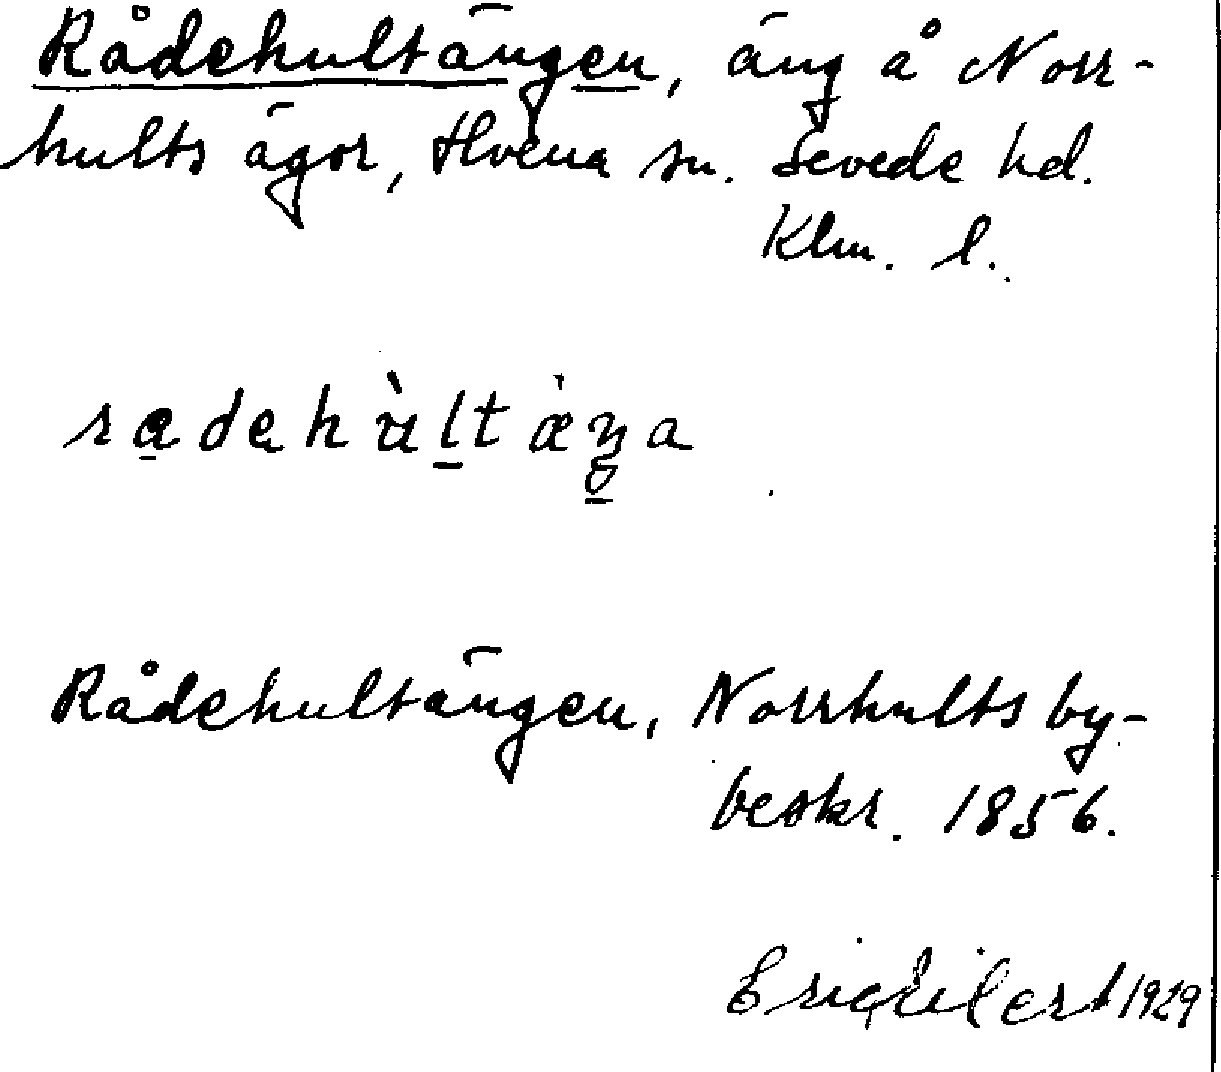 Rådehultängen, äng å Norr-
hults ägor, Hvena sn. Sevede hd.
Klm. l.
Rådehultängen, Norrhults by-
beskr. 1856.
Eric Eilert 1929